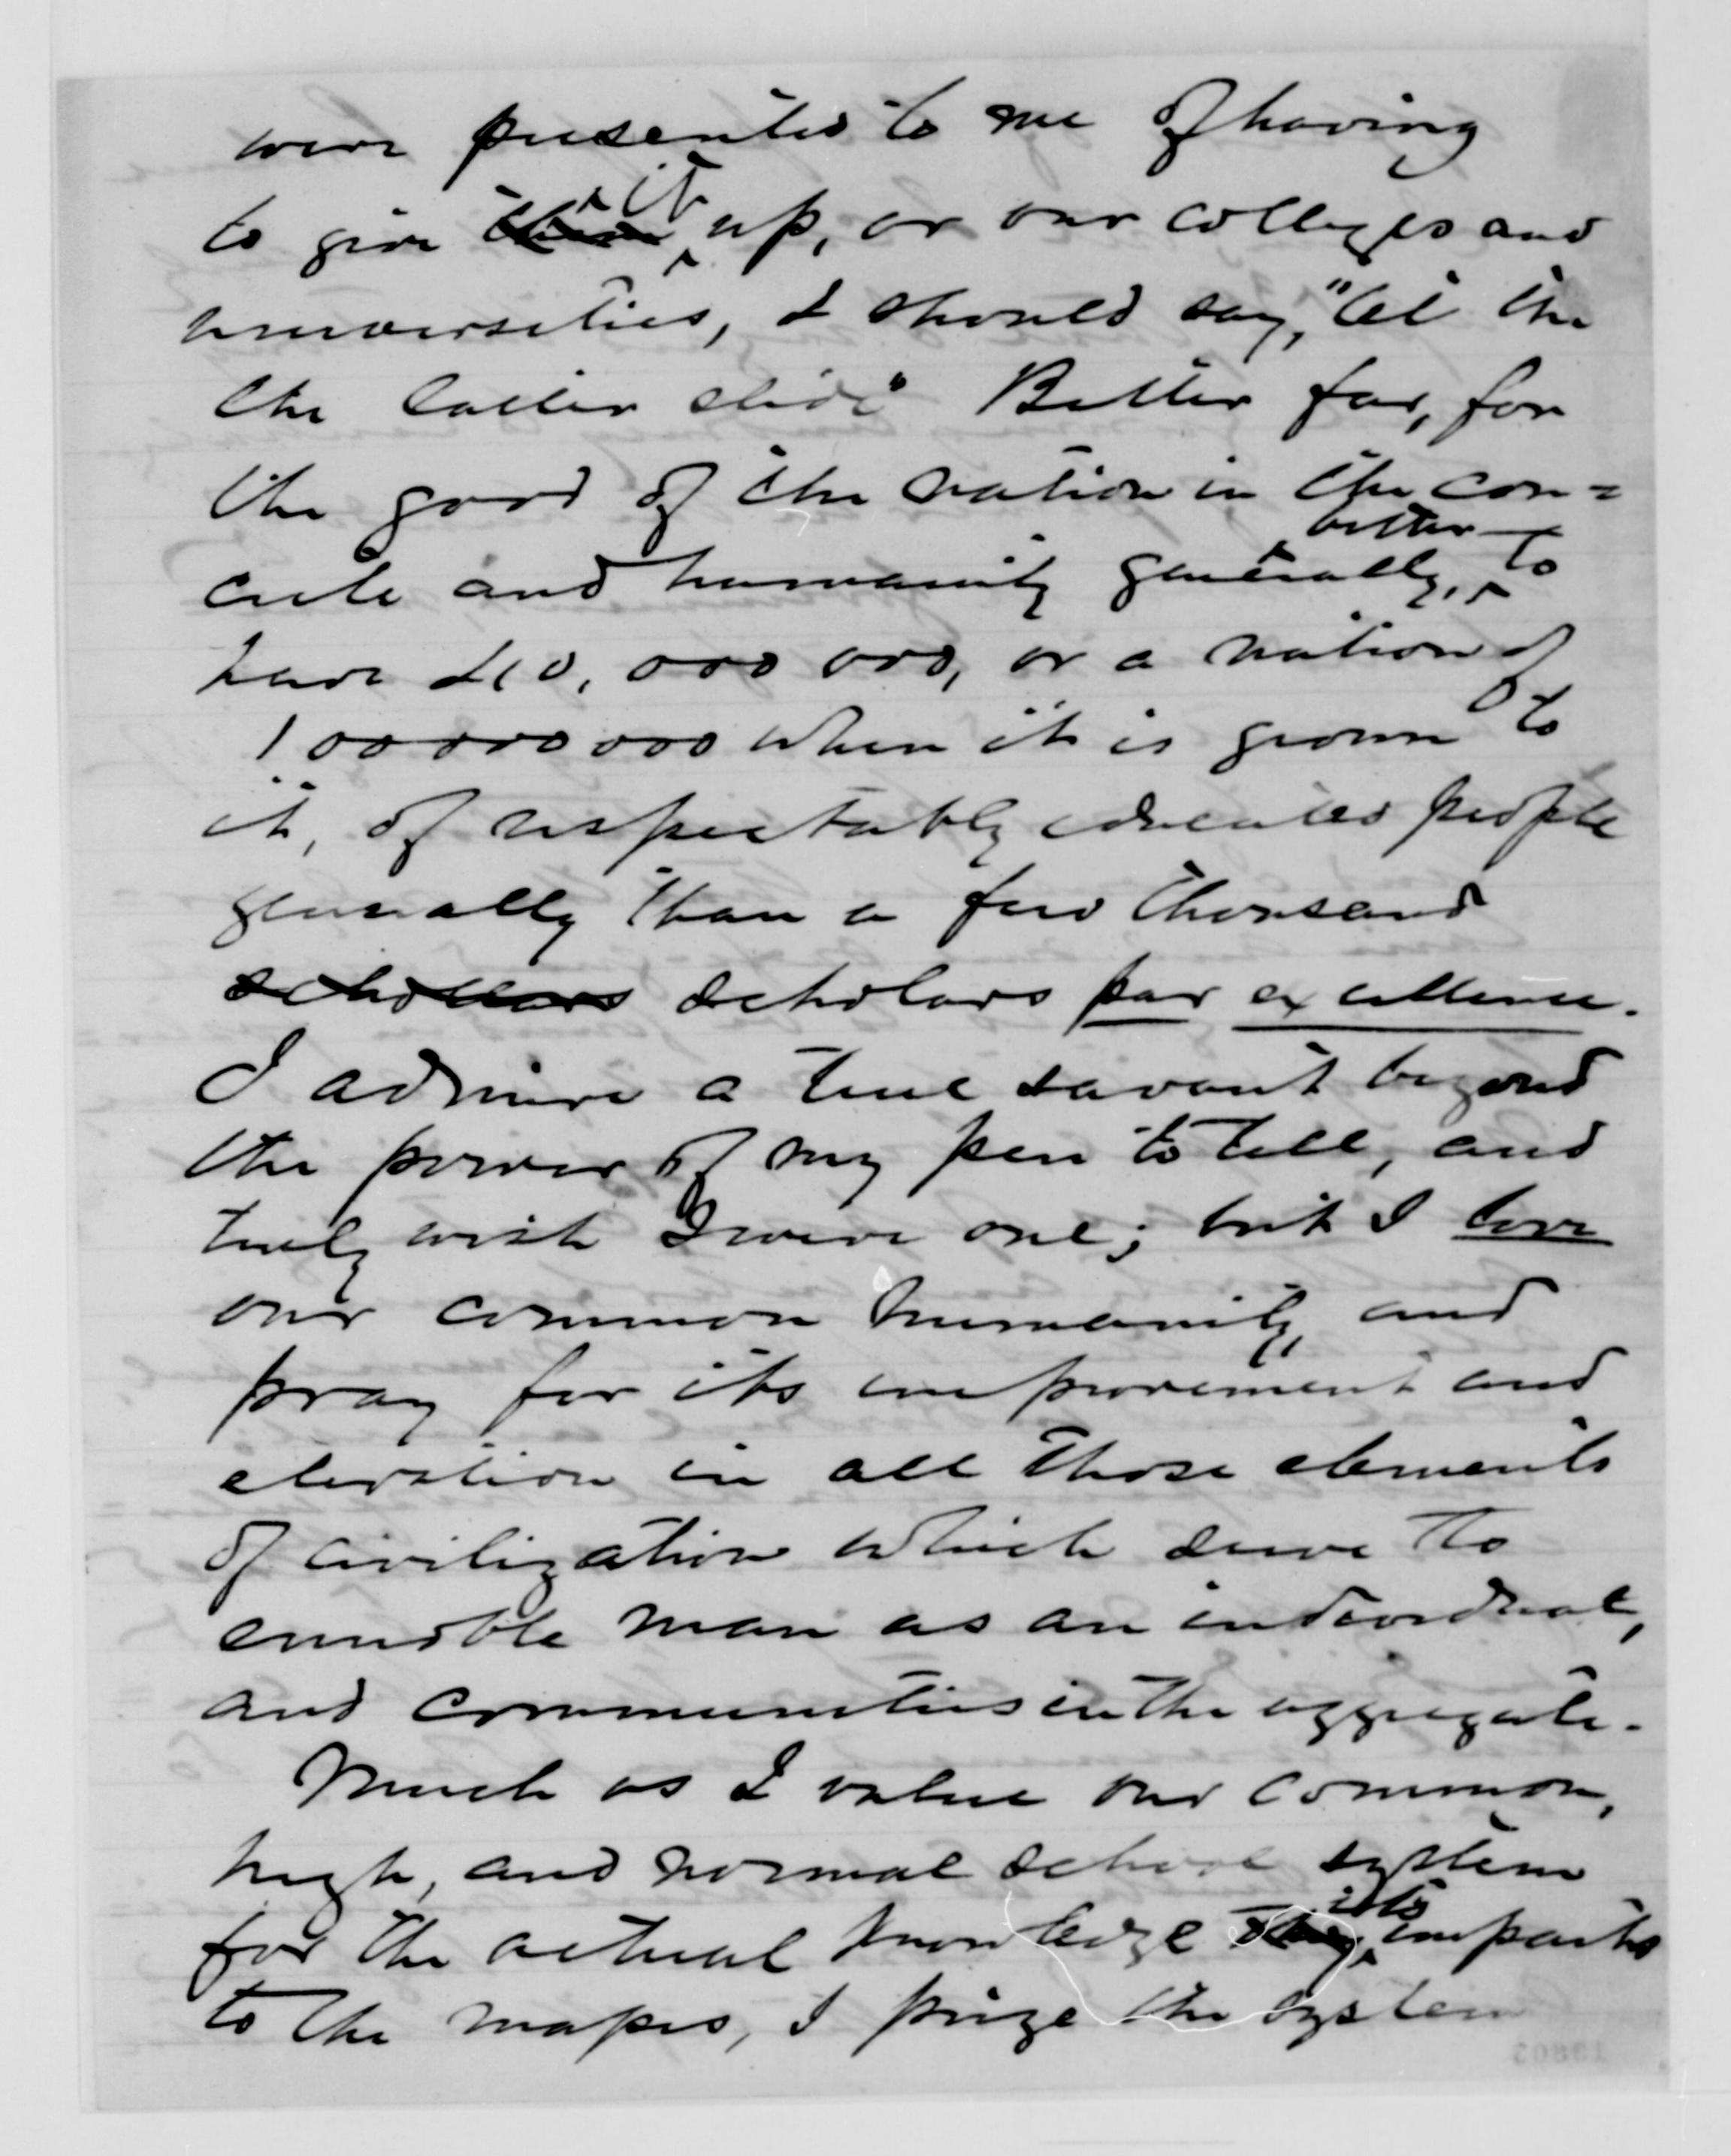 were presented to me of having
to give them it up, or our colleges and
universities, I should say, "let the
the latter slide" Better far, for
the good of the nation in the con=
crete and humanity generally, better to
have 40,000 000, or a nation of
100000000 when it is grown to
it, of respectably educated people
generally than a few thousand
schollars scholars par excellence.
I admire a true savant beyond
the power of my pen to tell, and
truly wish I were one; but I love
our common humanity, and
pray for its improvement and
elevation in all those elements
of civilization which serve to
ennoble man as an individual,
and communities in the aggregate.
Much as I value our common,
high, and normal school system
for the actual knowledge it imparts
to the masses, I prize the system